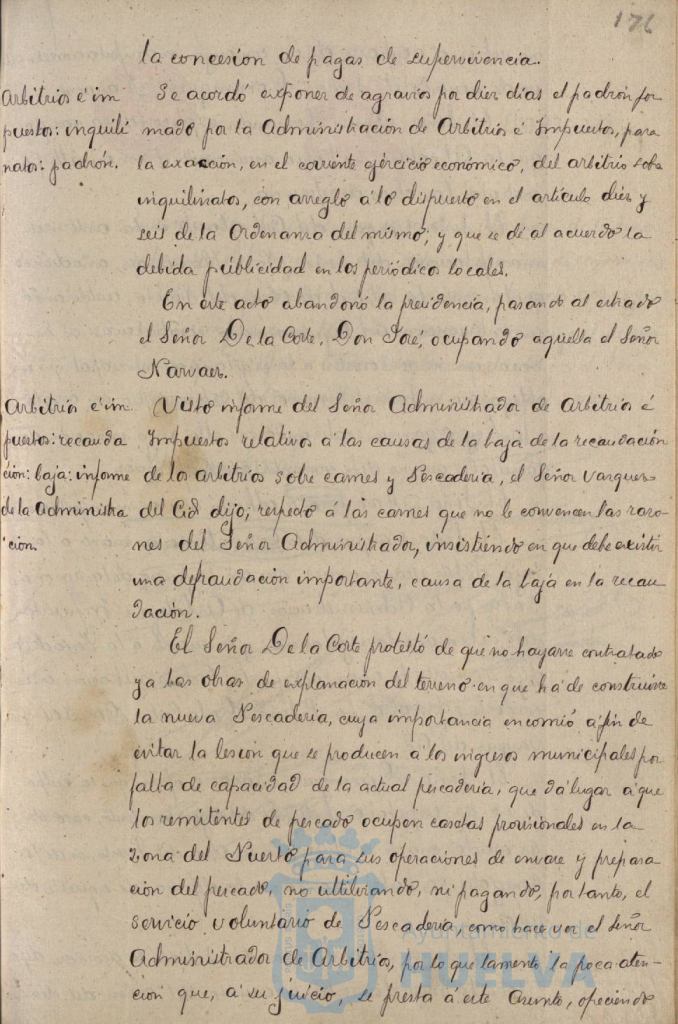 176
la concesion de pagas de supervivencia.
Arbitrios é im
puestos: inquili
natos: padrón.
Se acordó exponer de agravios por diez días el padrón for
mado por la Administración de Arbitrios é Impuestos, para
la exacción, en el corriente ejércicio económico, del arbitrio sobre
inquilinatos, con arreglo á lo dispuesto en el artículo diez y
seis de la Ordenanza del mismo; y que se dé al acuerdo la
debida publicidad en los periódicos locales.
En este acto abandonó la presidencia, pasando al estrado
el Señor De la Corte, Don José, ocupando aquella el Señor
Narvaez.
Arbitrios é im
puestos: recauda
ción: baja: informe
de la Administra
cion.
Visto informe del Señor Administrador de Arbitrios é
Impuestos relativos á las causas de la baja de la recaudación
de los arbitrios sobre carnes y Pescaderia, el Señor Vazquez
del Cid dijo; respecto á las carnes que no le convencen las razo-
nes del Señor Administrador, insistiendo en que debe existir
una defraudación importante, causa de la baja en la recau
dación.
El Señor De la Corte protestó de que no hayanse contratado
ya las obras de explanación del terreno en que há de construirse
la nueva Pescaderia, cuya importancia encomió á fin de
evitar la lesion que se producen á los ingresos municipales por
falta de capacidad de la actual pescaderia, que dá lugar á que
los remitentes de pescado ocupen casetas provisionales en la
zona del Puerto para sus operaciones de envase y prepara
ción del pescado, no utilizando, ni pagando, por tanto, el
servicio voluntario de Pescaderia, como hace ver el Señor
Administrador de Arbitrios, por lo que lamentó la poca aten-
cion que, á su juicio, se presta á este asunto, ofreciendo
Ayuntamiento de
HUELVA